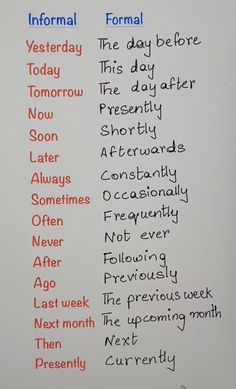 Informal Formal
Yesterday The day before
Today This day
Tomorrow The day after
Now Presently
Soon Shortly
Later Afterwards
Always Constantly
Sometimes Occasionally
Often Frequently
Never Not ever
After Following
Ago Previously
Last week The previous week
Next month The upcoming month
Then Next
Presently Currently